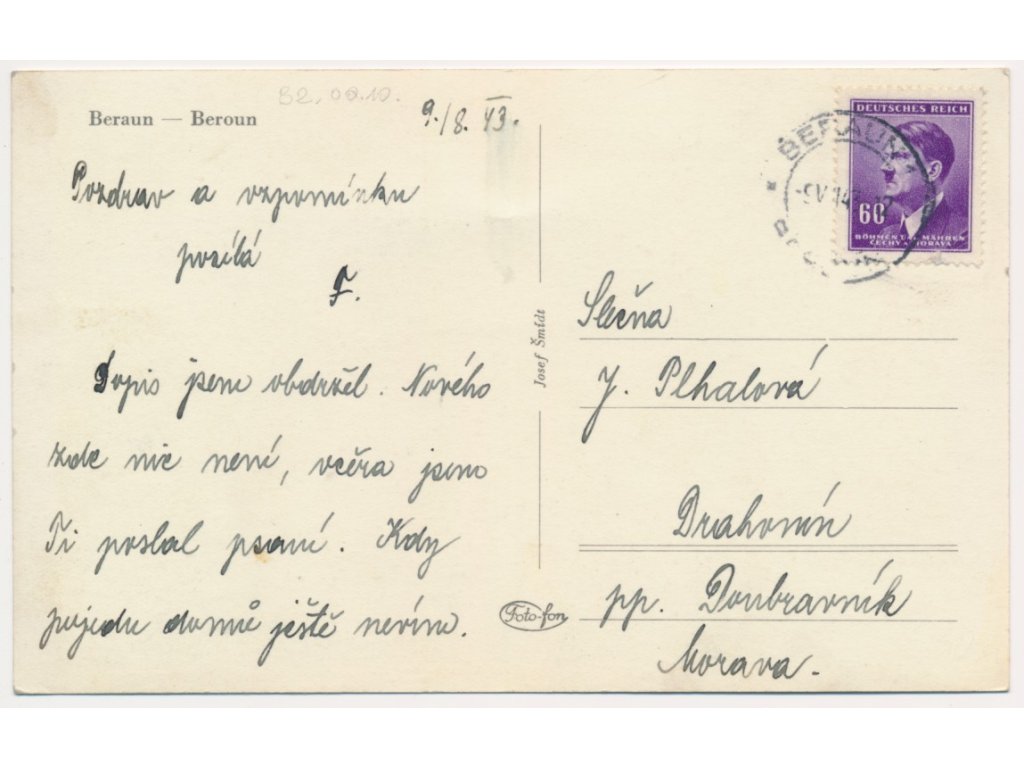 B2,00.10.
Beraun — Beroun
9./8. 43.
Pozdrav a vzpomínku
posílá
F.
Dopis jsem obdržel. Nového
zde nic není, včera jsem
Ti poslal psaní. Kdy
pojedu domů ještě nevím.
Josef Šmídt
Foto-fon
DEUTSCHES REICH
60
BÖHMEN U. MÄHREN
ČECHY A MORAVA
BERAUN 1
Slečna
J. Plhalová
Drahonín
pp. Doubravník
Morava.